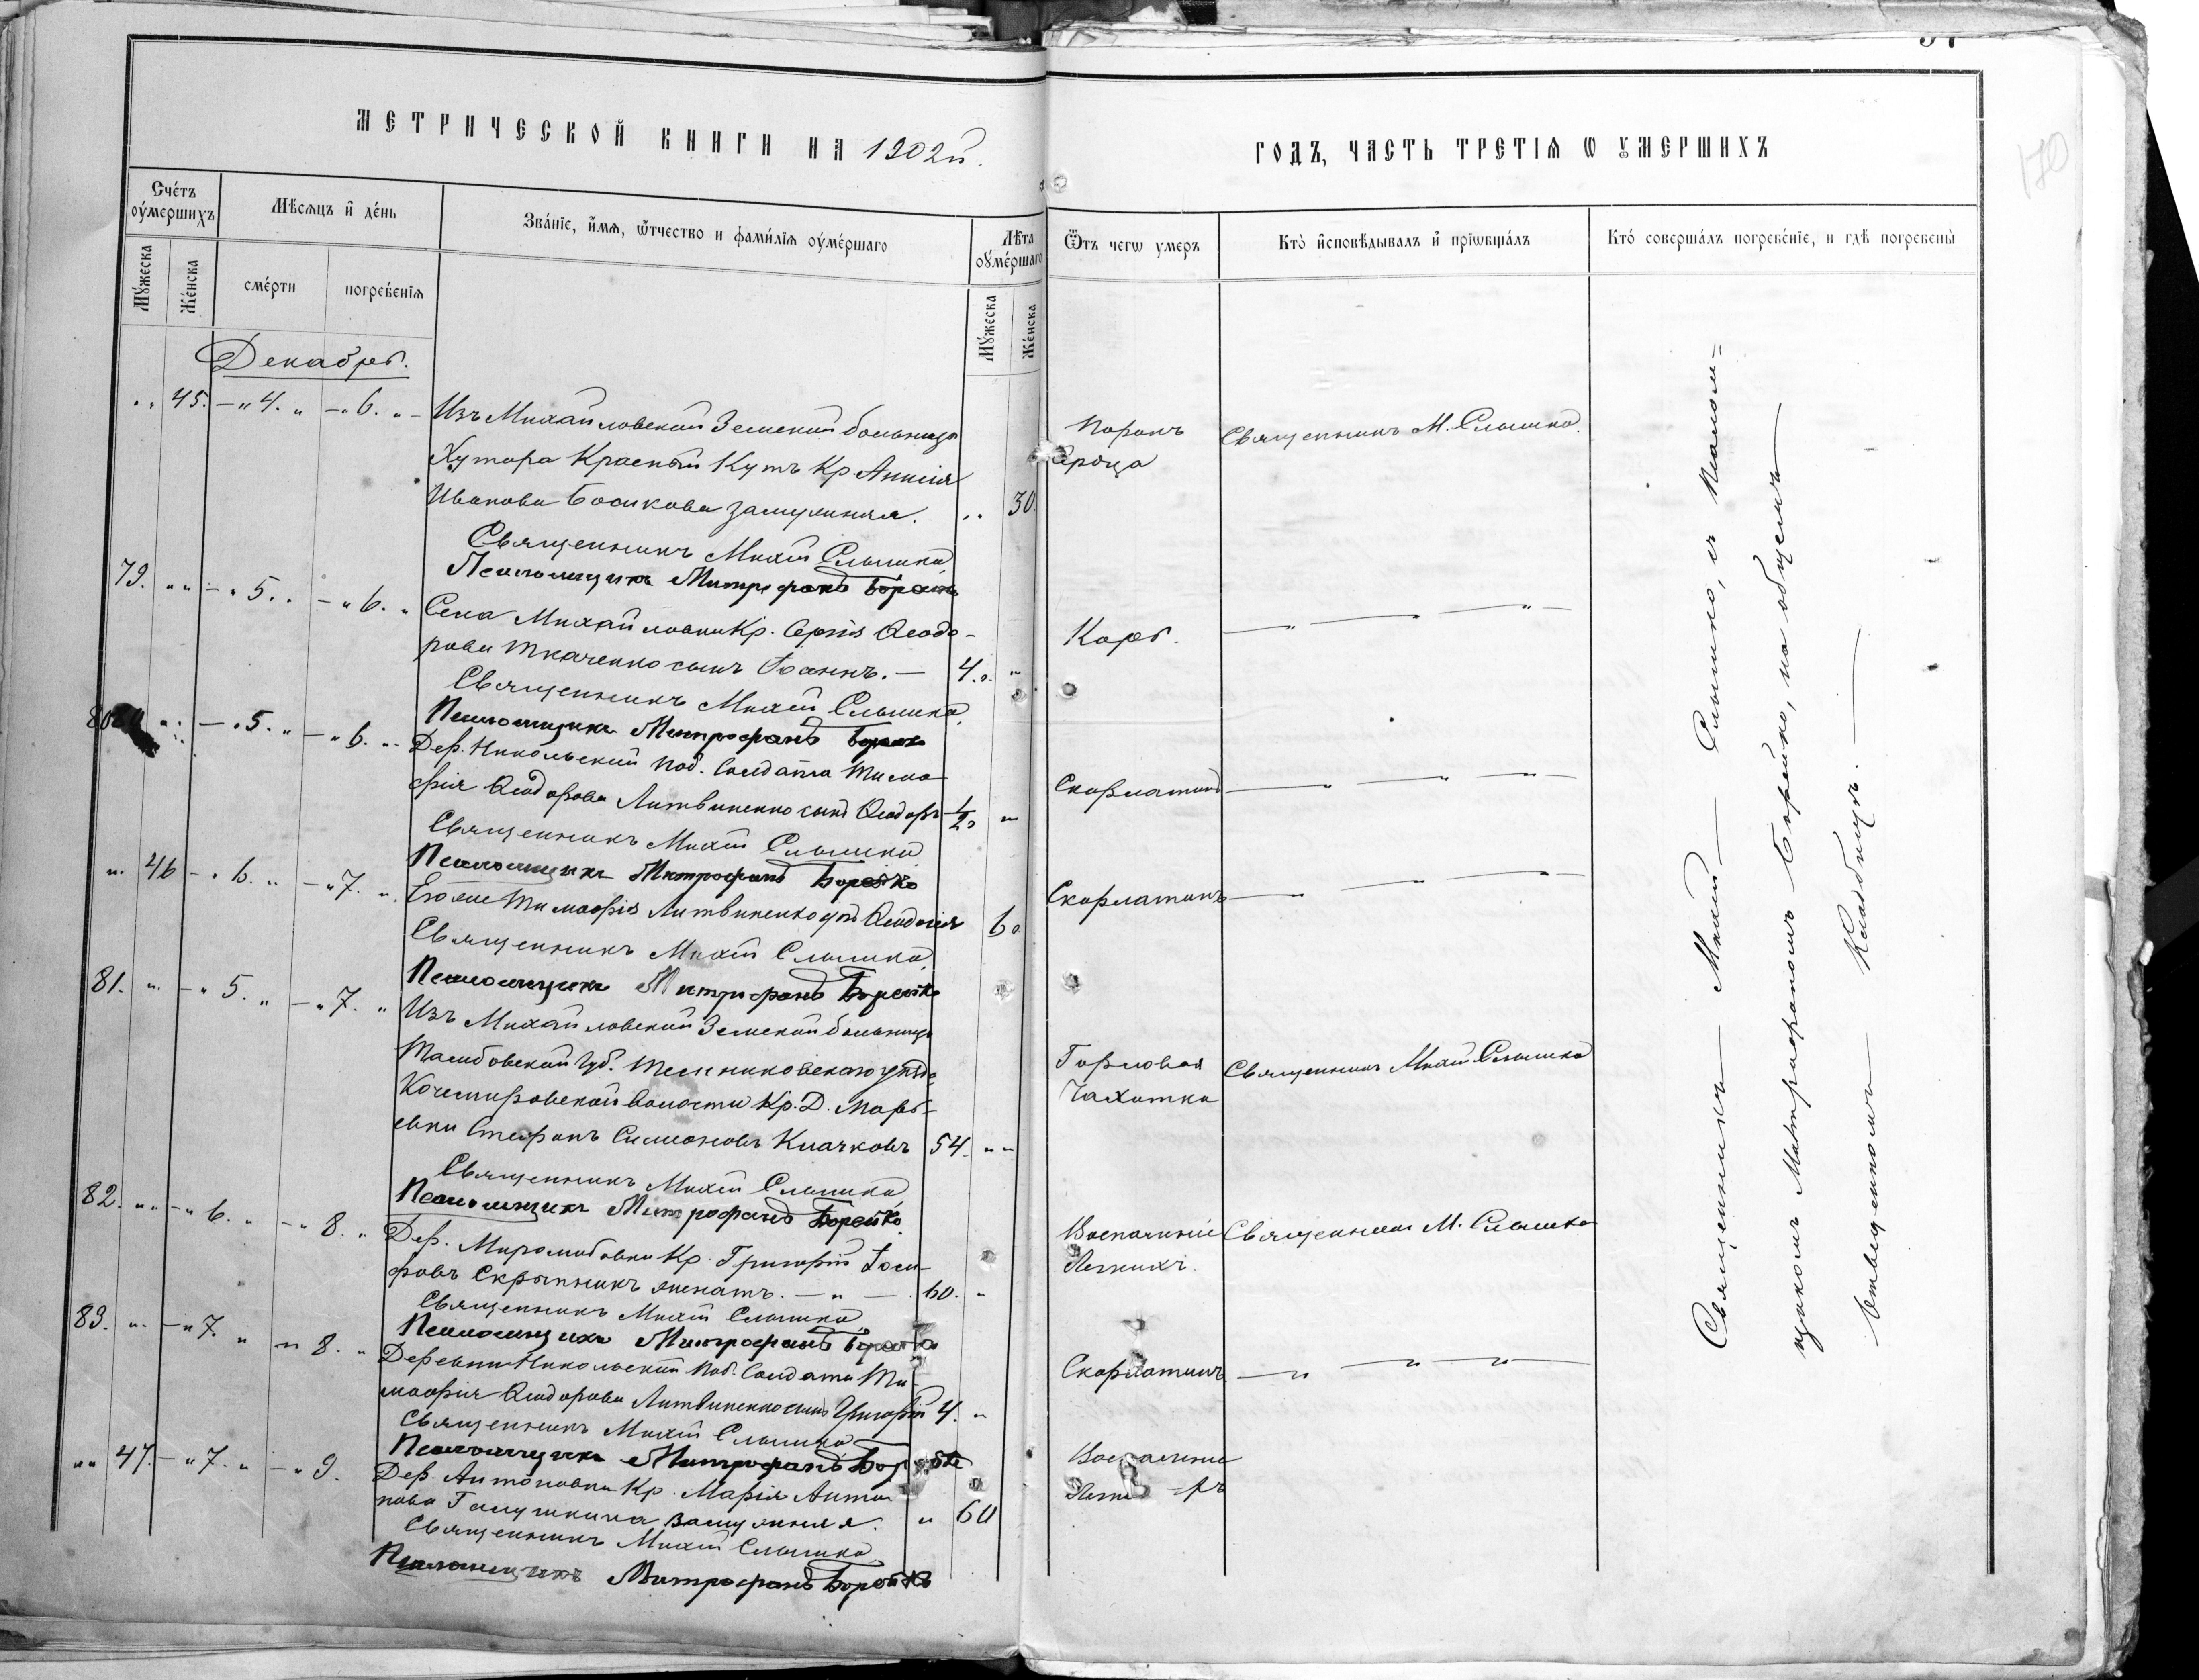 МЕТРИЧЕСКОЙ КНИГИ НА 1902й.
Счетъ оумершихъ
Мѣсяцъ и день
Званіе, имя, ѿчество и фамилія оумершаго
Лѣта оумершаго
Мужеска
Женска
смерти
погребенія
Мужеска
Женска
Декабрь.
" 45. — " 4. " — " 6. " — Изъ Михайловской Земской больницы
Хутора Красный Кутъ Кр. Анисія
Иванова замужняя. " 30.
Священникъ Михаи Слышко
Псаломщикъ Митрофанъ Борейко
79. " " — " 5. " — " 6. " Села Михайловки Кр. Сергія Ѳеодо-
рова Ткаченко сынъ Іоаннъ. — 4. "
Священникъ Михаи Слышко
Псаломщикъ Митрофанъ Борейко
80 " — " 5. " — " 6. " Дер. Никольской Под. Солдата Тимо-
фія Ѳеодорова Литвиненко сынъ Ѳеодоръ 1/2 "
Священникъ Михаи Слышко
Псаломщикъ Митрофанъ Борейко
" 46 — " 6. " — " 7. " Его же Тимофія Литвиненко дчь Ѳеодосія 6
Священникъ Михаи Слышко
Псаломщикъ Митрофанъ Борейко
81. " — " 5. " — " 7. " Изъ Михайловской Земской больницы
Тамбовской Губ. Темниковскаго уѣзда
Кочемировской Волости Кр. Д. Марь-
евки Стефанъ Симоновъ Клачковъ 54. " "
Священникъ Михаи Слышко
Псаломщикъ Митрофанъ Борейко
82. " " — " 6. " — " 8. " Дер. Миролюбовки Кр. Григорій Іоси-
фовъ Скрыпникъ женатъ. — " — 60. "
Священникъ Михаи Слышко
Псаломщикъ Митрофанъ Борейко
83. " — " 7. " — " 8. " Деревни Никольской Под. Солдата Ти-
мофія Ѳеодорова Литвиненко сынъ Григорій 4. "
Священникъ Михаи Слышко
Псаломщикъ Митрофанъ Борейко
" " 47. — " 7. " — " 9. Дер. Антоновки Кр. Марія Анто-
нова Галушкина замужняя. " 60
Священникъ Михаи Слышко
Псаломщикъ Митрофанъ Борейко
ГОДЪ, ЧАСТЬ ТРЕТІЯ Ѡ УМЕРШИХЪ
170
Ѿтъ чегѡ умеръ
Кто исповѣдывалъ и пріѡбщалъ
Кто совершалъ погребеніе, и гдѣ погребены
Порокъ Священникъ М. Слышко.
Сердца
Корь. — " — — " —
Скарлатина — " — " — " —
Скарлатинъ — " — — " —
Горловая Священникъ Михаи Слышко
Чахотка
Воспаленіе Священникъ М. Слышко
Легкихъ.
Скарлатинъ — " — " — " —
Воспаленіе
Священникъ — Михаи — Слышко, съ Псалом=
щикомъ Митрофаномъ Борейко, на общемъ
Кладбищѣ. —